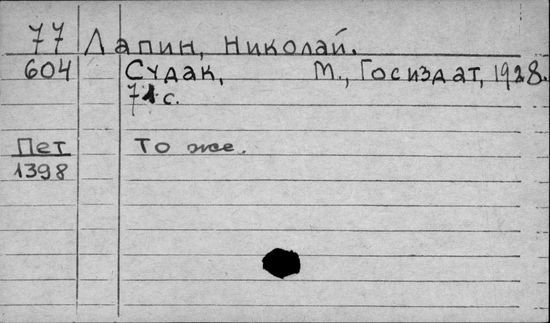 77 Лапин, Николай.
604 Судак, М., Госиздат, 1928.
71 с.
Пет То же.
1398